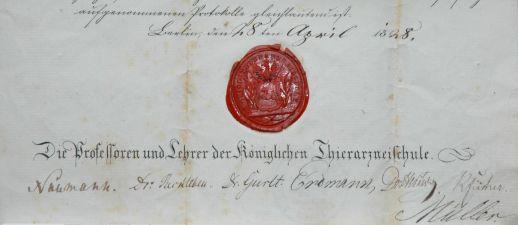 aufgenommenen Protokolle gleichlautend ist.
Berlin, den 28ten April 1848.
Die Professoren und Lehrer der Königlichen Thierarzneischule.
Naumann. Dr. Gurlt. Erdmann,
Müller.